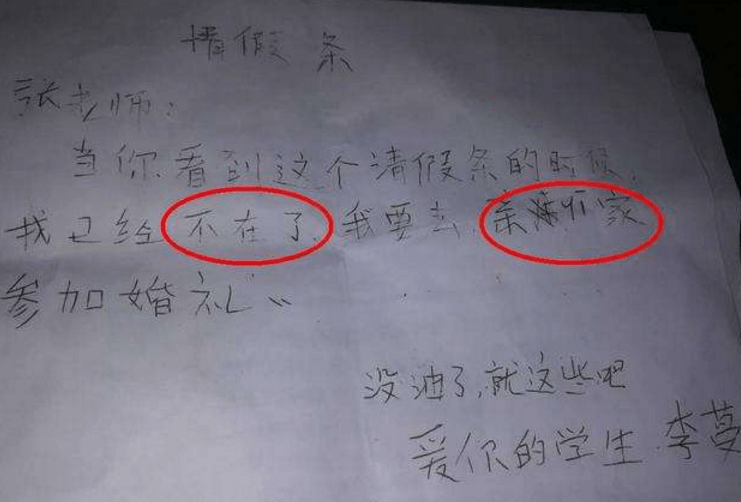 情假条
张老师：
当你看到这个清假条的时候，
我已经不在了，我要去亲家
参加婚礼"
没油了，就这些吧
爱你的学生 李蔓